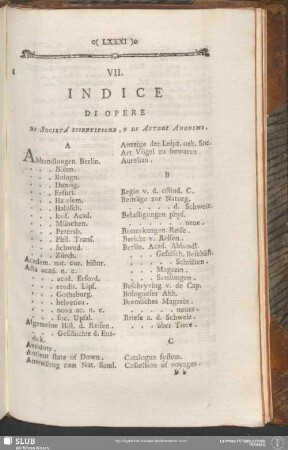 ( LXXXI )
VII.
INDICE
DI OPERE
DI SOCIETÀ SCIENTIFICHE, E DI AUTORI ANONIMI.
A
Abhandlungen Berlin.
. . . . Böhm.
. . . . Bologn.
. . . . Danzig.
. . . . Erfurt.
. . . . Haarlem.
. . . . Hallisch.
. . . . kuf. Acad.
. . . . München.
. . . . Petersb.
. . . . Phil. Trans.
. . . . Schwed.
. . . . Zürch.
Academ. nat. cur. histor.
Acta acad. n. c.
. . . . acad. Erford.
. . . . erudit. Lips.
. . . . Gotheburg.
. . . . helvetica.
. . . . nova ac. n. c.
. . . . soc. Upsal.
Algemeine Hist. d. Reisen.
. . . . Geschichte d. Ent-
dek.
Antidote.
Antient state of Down.
Anweisung zum Nat. Saml.
Anzeige der Leipz. oek. Soc.
Art Vögel zu bewaren.
Aurelian.
B
Begin v. d. ostind. C.
Beiträge zur Naturg.
. . . . d. Schweiz.
Belustigungen phys.
. . . . neue.
Bemerkungen Reise.
Bericht v. Reisen.
Berlin. Acad. Abhandl.
. . . . Gesellsch. Beschäft.
. . . . Schriften.
. . . . Magazin.
. . . . Samlungen.
Beschryving v. de Cap.
Bologneser Abh.
Bremisches Magazin.
. . . . neues.
Briefe a. d. Schweiz.
. . . . über Tiere.
C
Catalogue system.
Collection of voyages.
SLUB